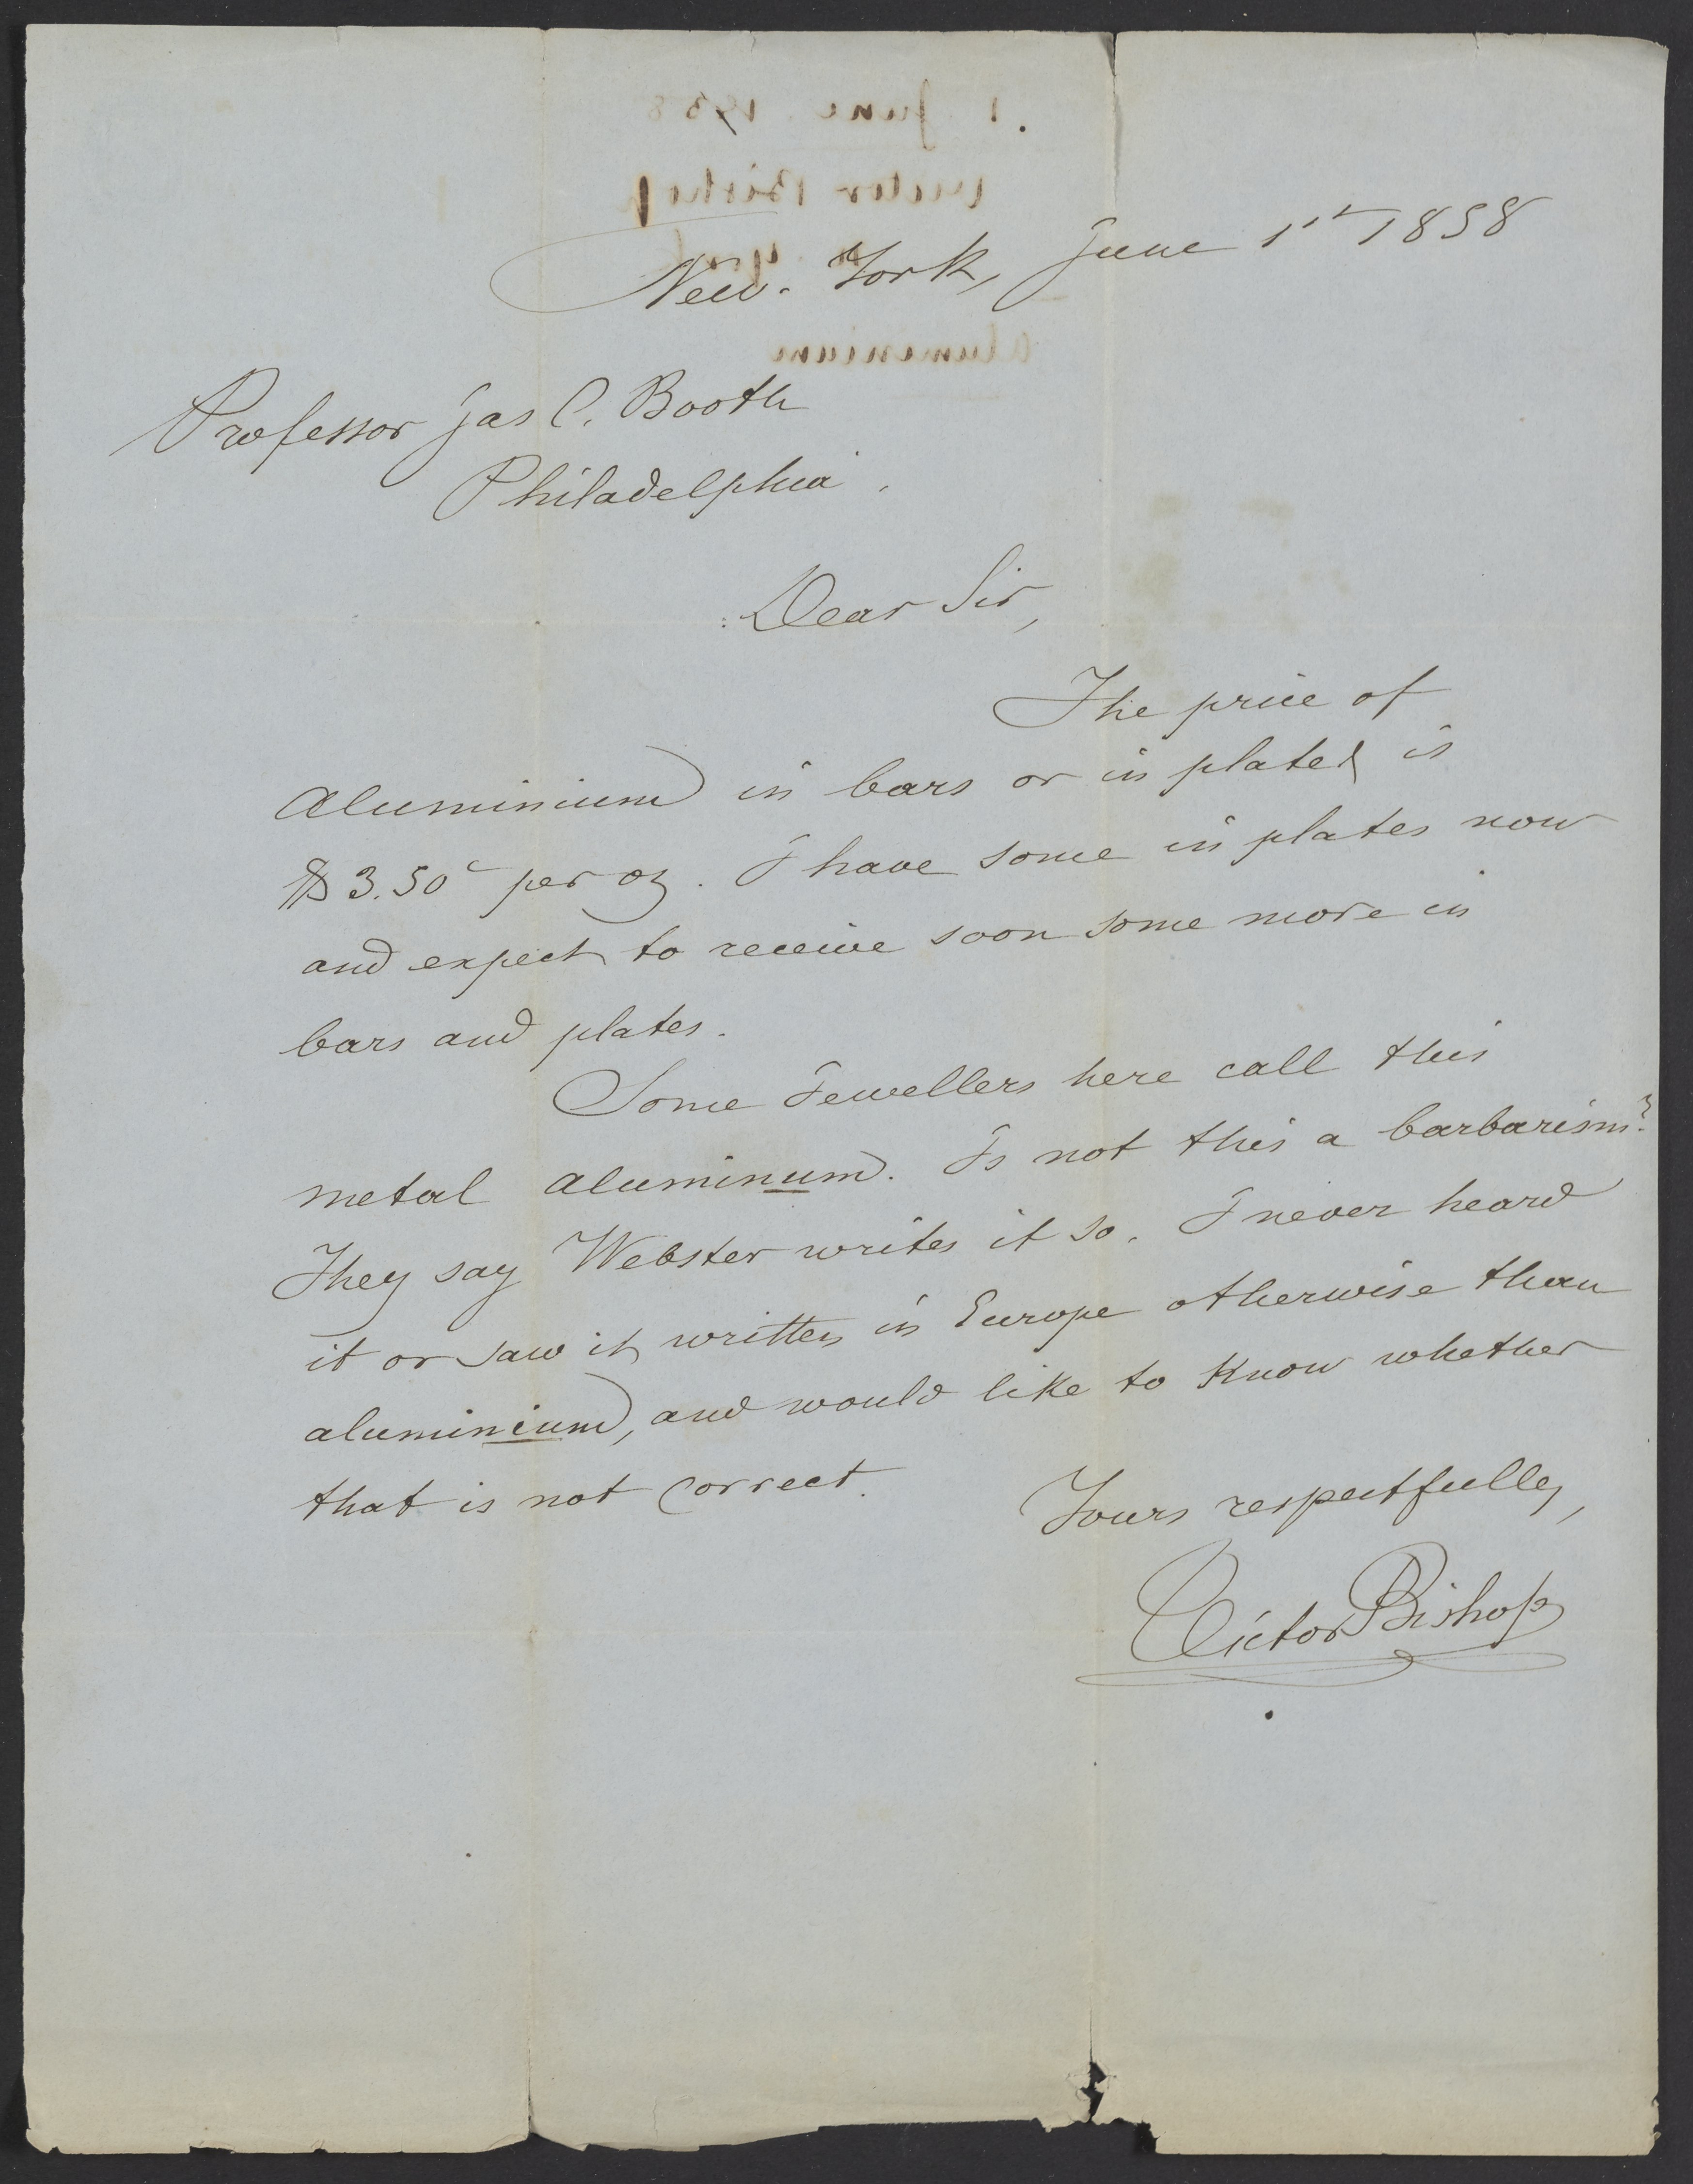 1 June 1858
Victor Bishop
New-York, June 1st 1858
Aluminium
Professor Jas C. Booth
Philadelphia.
Dear Sir,
The price of
Aluminium in bars or in plates is
$3.50c per oz. I have some in plates now
and expect to receive soon some more in
bars and plates.
Some Jewellers here call this
metal Aluminum. Is not this a barbarism?
They say Webster writes it so. I never heard
it or saw it written in Europe otherwise than
aluminium, and would like to know whether
that is not correct.
Yours respectfully,
Victor Bishop